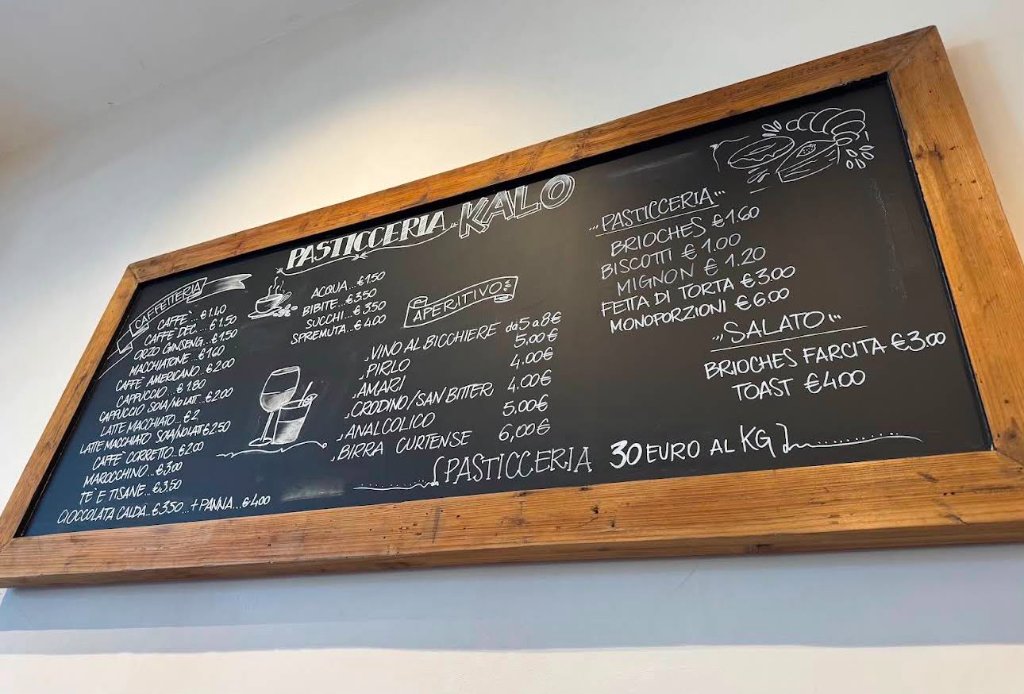 PASTICCERIA KALO
CAFFETTERIA
CAFFÈ... €1.40
CAFFÈ DEC... €1.50
ORZO GINSENG... €1.50
MACCHIATONE... €1.60
CAFFÈ AMERICANO... €2.00
CAPPUCCIO... €1.80
CAPPUCCIO SOIA/NO LAT... €2.00
LATTE MACCHIATO... €2
LATTE MACCHIATO SOIA/NO LAT €2.50
CAFFÈ CORRETTO... €2.00
MAROCCHINO... €3.00
TÈ E TISANE... €3.50
CIOCCOLATA CALDA... €3.50 ... + PANNA... €4.00
ACQUA... €1.50
BIBITE... €3.50
SUCCHI... €3.50
SPREMUTA... €4.00
APERITIVO
VINO AL BICCHIERE da 5 a 8€
PIRLO 5,00€
AMARI 4.00€
CRODINO/SAN BITTER 4.00€
ANALCOLICO 5,00€
BIRRA CURTENSE 6,00€
...PASTICCERIA...
BRIOCHES €1.60
BISCOTTI €1.00
MIGNON €1.20
FETTA DI TORTA €3.00
MONOPORZIONI €6.00
...SALATO...
BRIOCHES FARCITA €3.00
TOAST €4.00
PASTICCERIA 30 EURO AL KG